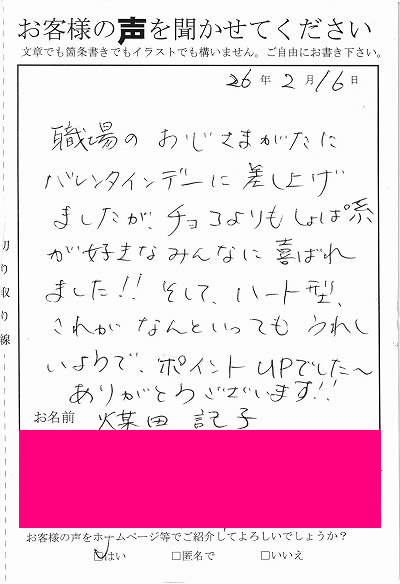 お客様の声を聞かせてください
文章でも箇条書きでもイラストでも構いません。ご自由にお書き下さい。
26年2月16日
職場のおじさまがたに
バレンタインデーに差し上げ
ましたが、チョコよりもしょぱ系
が好きなみんなに喜ばれ
ました!!そして、ハート型、
これがなんといってもうれし
いようで、ポイントUPでした~
ありがとうございます!!
お名前 煤田 記子
お客様の声をホームページ等でご紹介してよろしいでしょうか?
☑はい □匿名で □いいえ
切り取り線